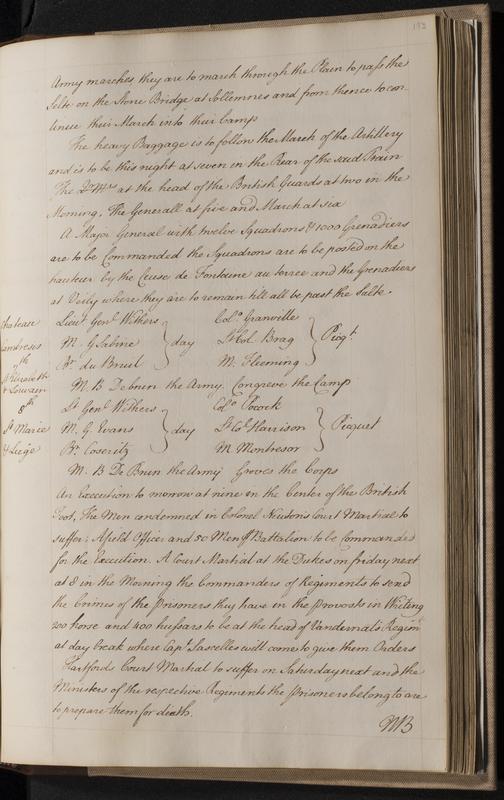 193
Army marches they are to march through the Plain to pass the
Selte on the Stone Bridge at Sollemnes and from thence to con-
tinue their March into their Camp
The heavy Baggage is to follow the March of the Artillery
and is to be this night at seven in the Rear of the said Train
The at the head of the British Guards at two in the
Morning, The Generall at five and March at six
A Major General with twelve Squadrons & 1000 Grenadiers
are to be Commanded the Squadrons are to be posted on the
hauteur by the Ceuse de Fontaine au torree and the Grenadiers
at Vesly where they are to remain till all be past the Salte.
Chateau
Cambresis
7th
St Elizabeth
& Louvain
Lieut. Genl. Withers Colo. Granville
M. G Sabine day Lt Col. Brag Piqt.
Br. du Breuil M. Fleming
M. B Debrun the Army. Congreve the Camp
8th
St Marice
& Liege
Lt Genl. Withers Colo. Pocock
M. G. Evans day Lt Col Harrison Picquet
Br. Coseritz M. Montresor
M. B De Brun the Army Groves the Corps
An Execution to morow at nine in the Center of the British
Foot, The Men condemned in Colonel Newton's Court Martial to
suffer; A field Officer and 50 Men Battalion to be Commanded
for the Execution. A Court Martial at the Dukes on friday next
at 8 in the Morning the Commanders of Regiments to send
the Crimes of the prisoners they have in the provosts in Writing
200 horse and 400 hussars to be at the head of Vandernats Regimt
at day break where Capt Lascelles will come to give them Orders
Hartfords Court Martial to suffer on Saturday next and the
Ministers of the repective Regiments the prisoners belong to are
to prepare them for death.
MB